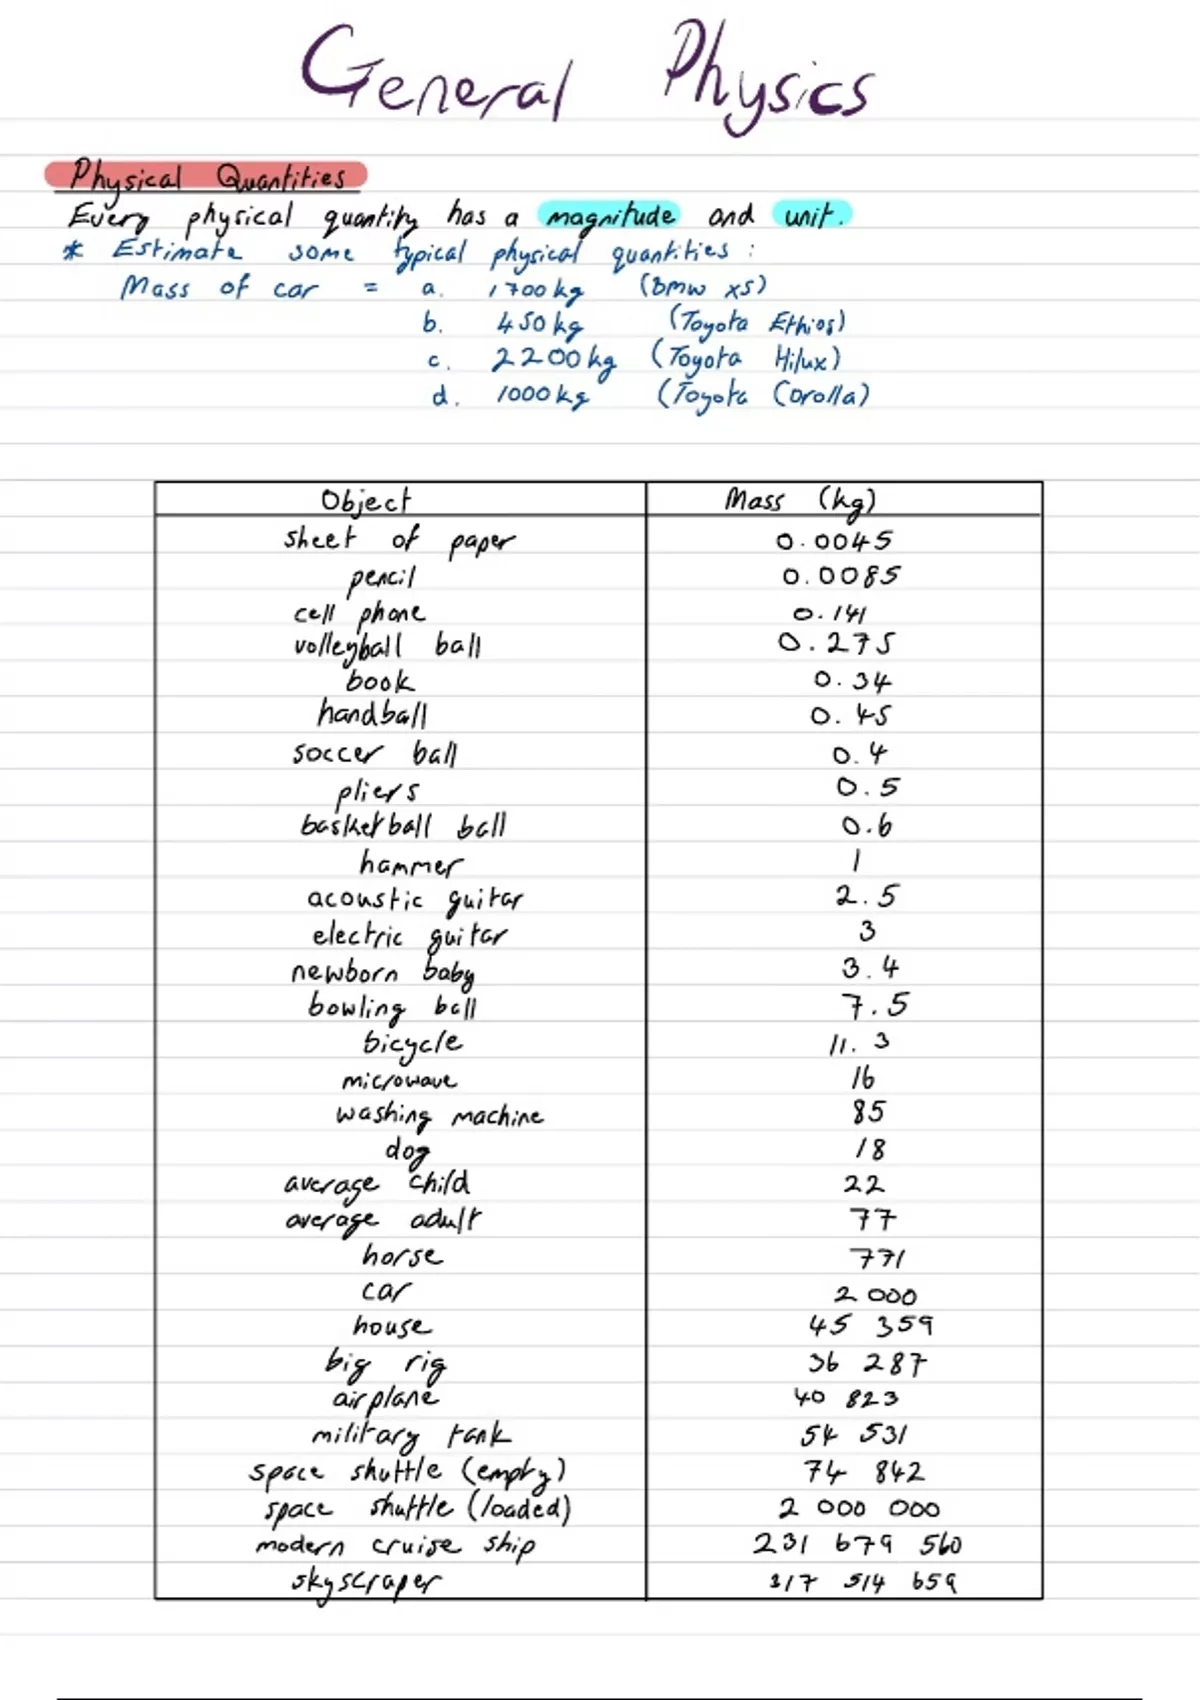 General Physics
Physical Quantities
Every physical quantity has a magnitude and unit.
* Estimate some typical physical quantities :
Mass of car = a. 1700kg (Bmw x5)
b. 450kg (Toyota Ethios)
c. 2200kg (Toyota Hilux)
d. 1000kg (Toyota Corolla)
Object Mass (kg)
sheet of paper 0.0045
pencil 0.0085
cell phone 0.141
volleyball ball 0.275
book 0.34
handball 0.45
soccer ball 0.4
pliers 0.5
basketball ball 0.6
hammer 1
acoustic guitar 2.5
electric guitar 3
newborn baby 3.4
bowling ball 7.5
bicycle 11.3
microwave 16
washing machine 85
dog 18
average child 22
average adult 77
horse 771
car 2 000
house 45 359
big rig 36 287
airplane 40 823
military tank 54 531
space shuttle (empty) 74 842
space shuttle (loaded) 2 000 000
modern cruise ship 231 679 560
skyscraper 317 514 659